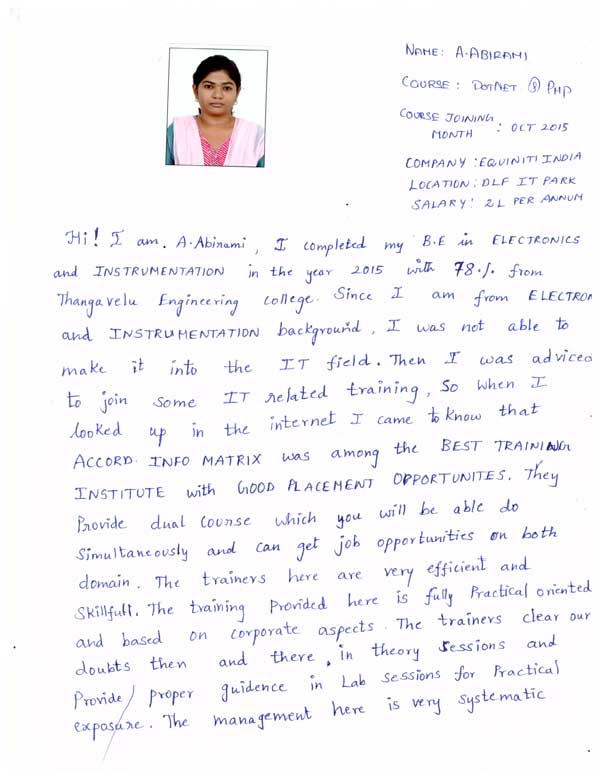 NAME: A.ABIRAMI
COURSE: DOTNET & PHP
COURSE JOINING
MONTH : OCT 2015
COMPANY: EQUINITI INDIA
LOCATION: DLF IT PARK
SALARY: 2L PER ANNUM
Hi! I am. A.Abirami, I completed my B.E in ELECTRONICS
and INSTRUMENTATION in the year 2015 with 78.%. from
Thangavelu Engineering college. Since I am from ELECTRON
and INSTRUMENTATION background, I was not able to
make it into the IT field. Then I was adviced
to join some IT related training, So when I
looked up in the internet I came to know that
ACCORD INFO MATRIX was among the BEST TRAINING
INSTITUTE with GOOD PLACEMENT OPPORTUNITES. They
Provide dual Course which you will be able do
Simultaneously and can get job opportunities on both
domain. The trainers here are very efficient and
Skillfull. The training Provided here is fully Practical oriented
and based on corporate aspects. The trainers clear our
doubts then and there, in theory Sessions and
Provide proper guidence in Lab Sessions for Practical
exposure. The management here is very systematic